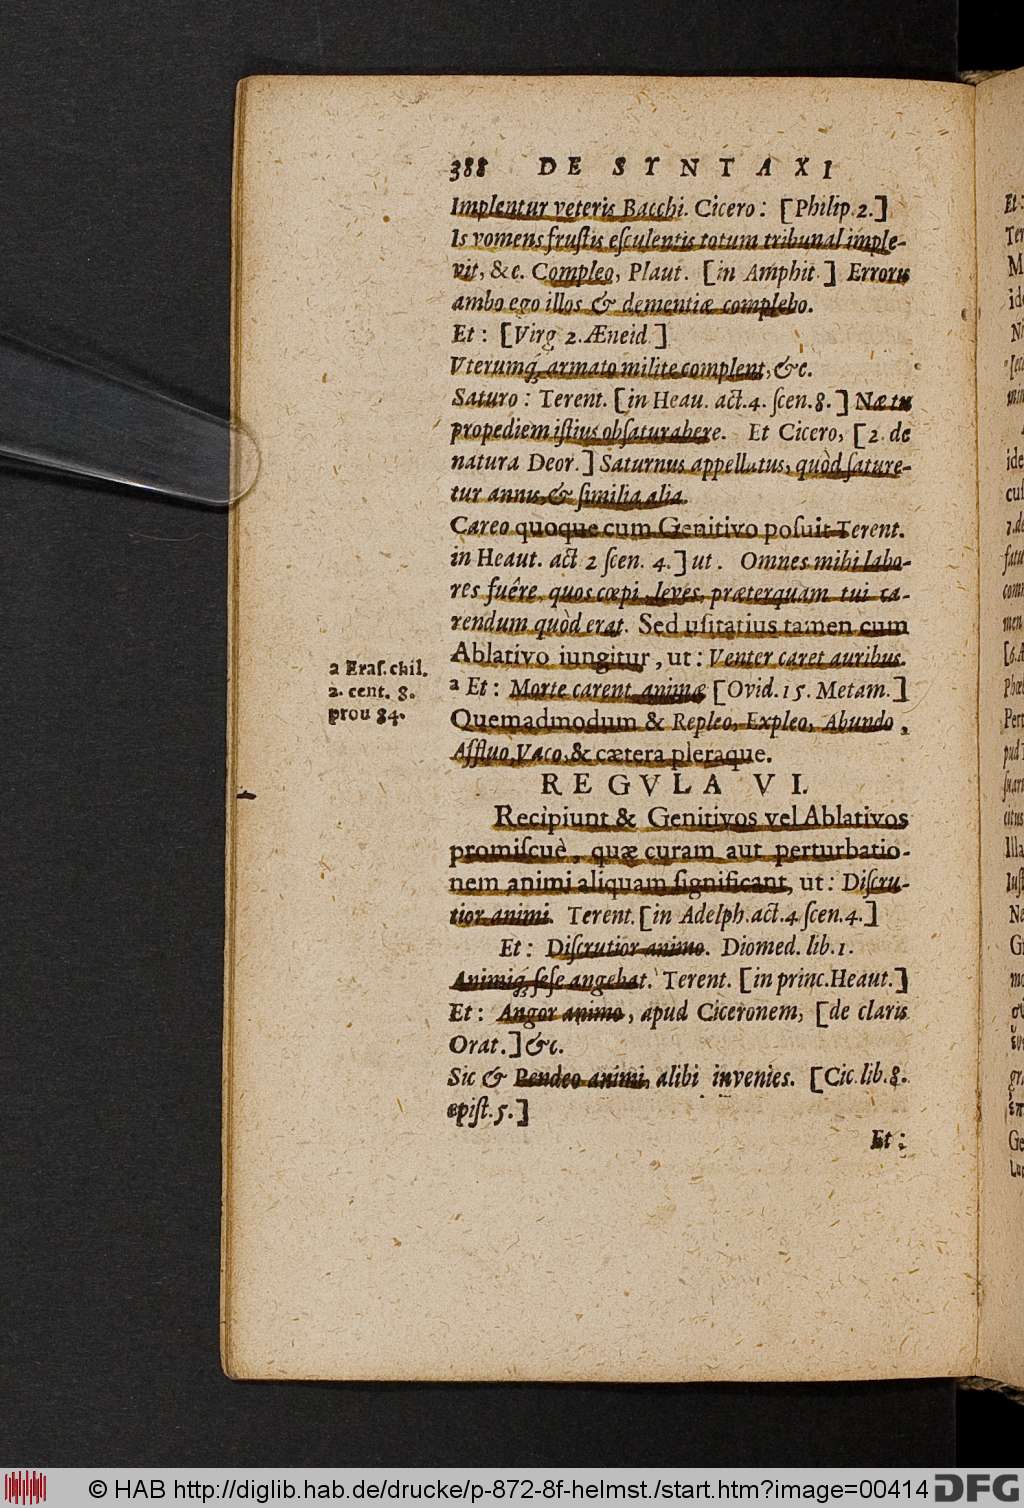 388 DE SYNTAXI
Implentur veteris Bacchi. Cicero: [Philip. 2.]
Is vomens frustis esculentis totum tribunal imple-
vit, &c. Compleo, Plaut. [in Amphit.] Erroris
ambo ego illos & dementiæ complebo.
Et: [Virg 2. Æneid]
Vterumq́; armato milite complent, &c.
Saturo: Terent. [in Heau. act. 4. scen. 8.] Næ tu
propediem istius obsaturabere. Et Cicero, [2. de
natura Deor.] Saturnus appellatus, quòd sature-
tur annis, & similia alia.
Careo quoque cum Genitivo posuit Terent.
in Heaut. act 2 scen. 4.] ut. Omnes mihi labo-
res fuêre, quos cœpi, leves, præterquam tui ca-
rendum quòd erat. Sed usitatius tamen cum
Ablativo iungitur, ut: Venter caret auribus.
a Et: Morte carent animæ [Ovid. 15. Metam.]
Quemadmodum & Repleo, Expleo, Abundo,
Affluo, Vaco, & cætera pleraque.
a Eras. chil.
2. cent. 8.
prou 84.
REGVLA VI.
Recipiunt & Genitivos vel Ablativos
promiscuè, quæ curam aut perturbatio-
nem animi aliquam significant, ut: Discru-
tior animi. Terent. [in Adelph. act. 4 scen. 4.]
Et: Discrutior animo. Diomed. lib. 1.
Animiq́; sese angebat. Terent. [in princ. Heaut.]
Et: Angor animo, apud Ciceronem, [de claris
Orat.] &c.
Sic & Pendeo animi, alibi invenies. [Cic. lib. 8.
epist. 5.]
Et:
© HAB http://diglib.hab.de/drucke/p-872-8f-helmst./start.htm?image=00414 DFG